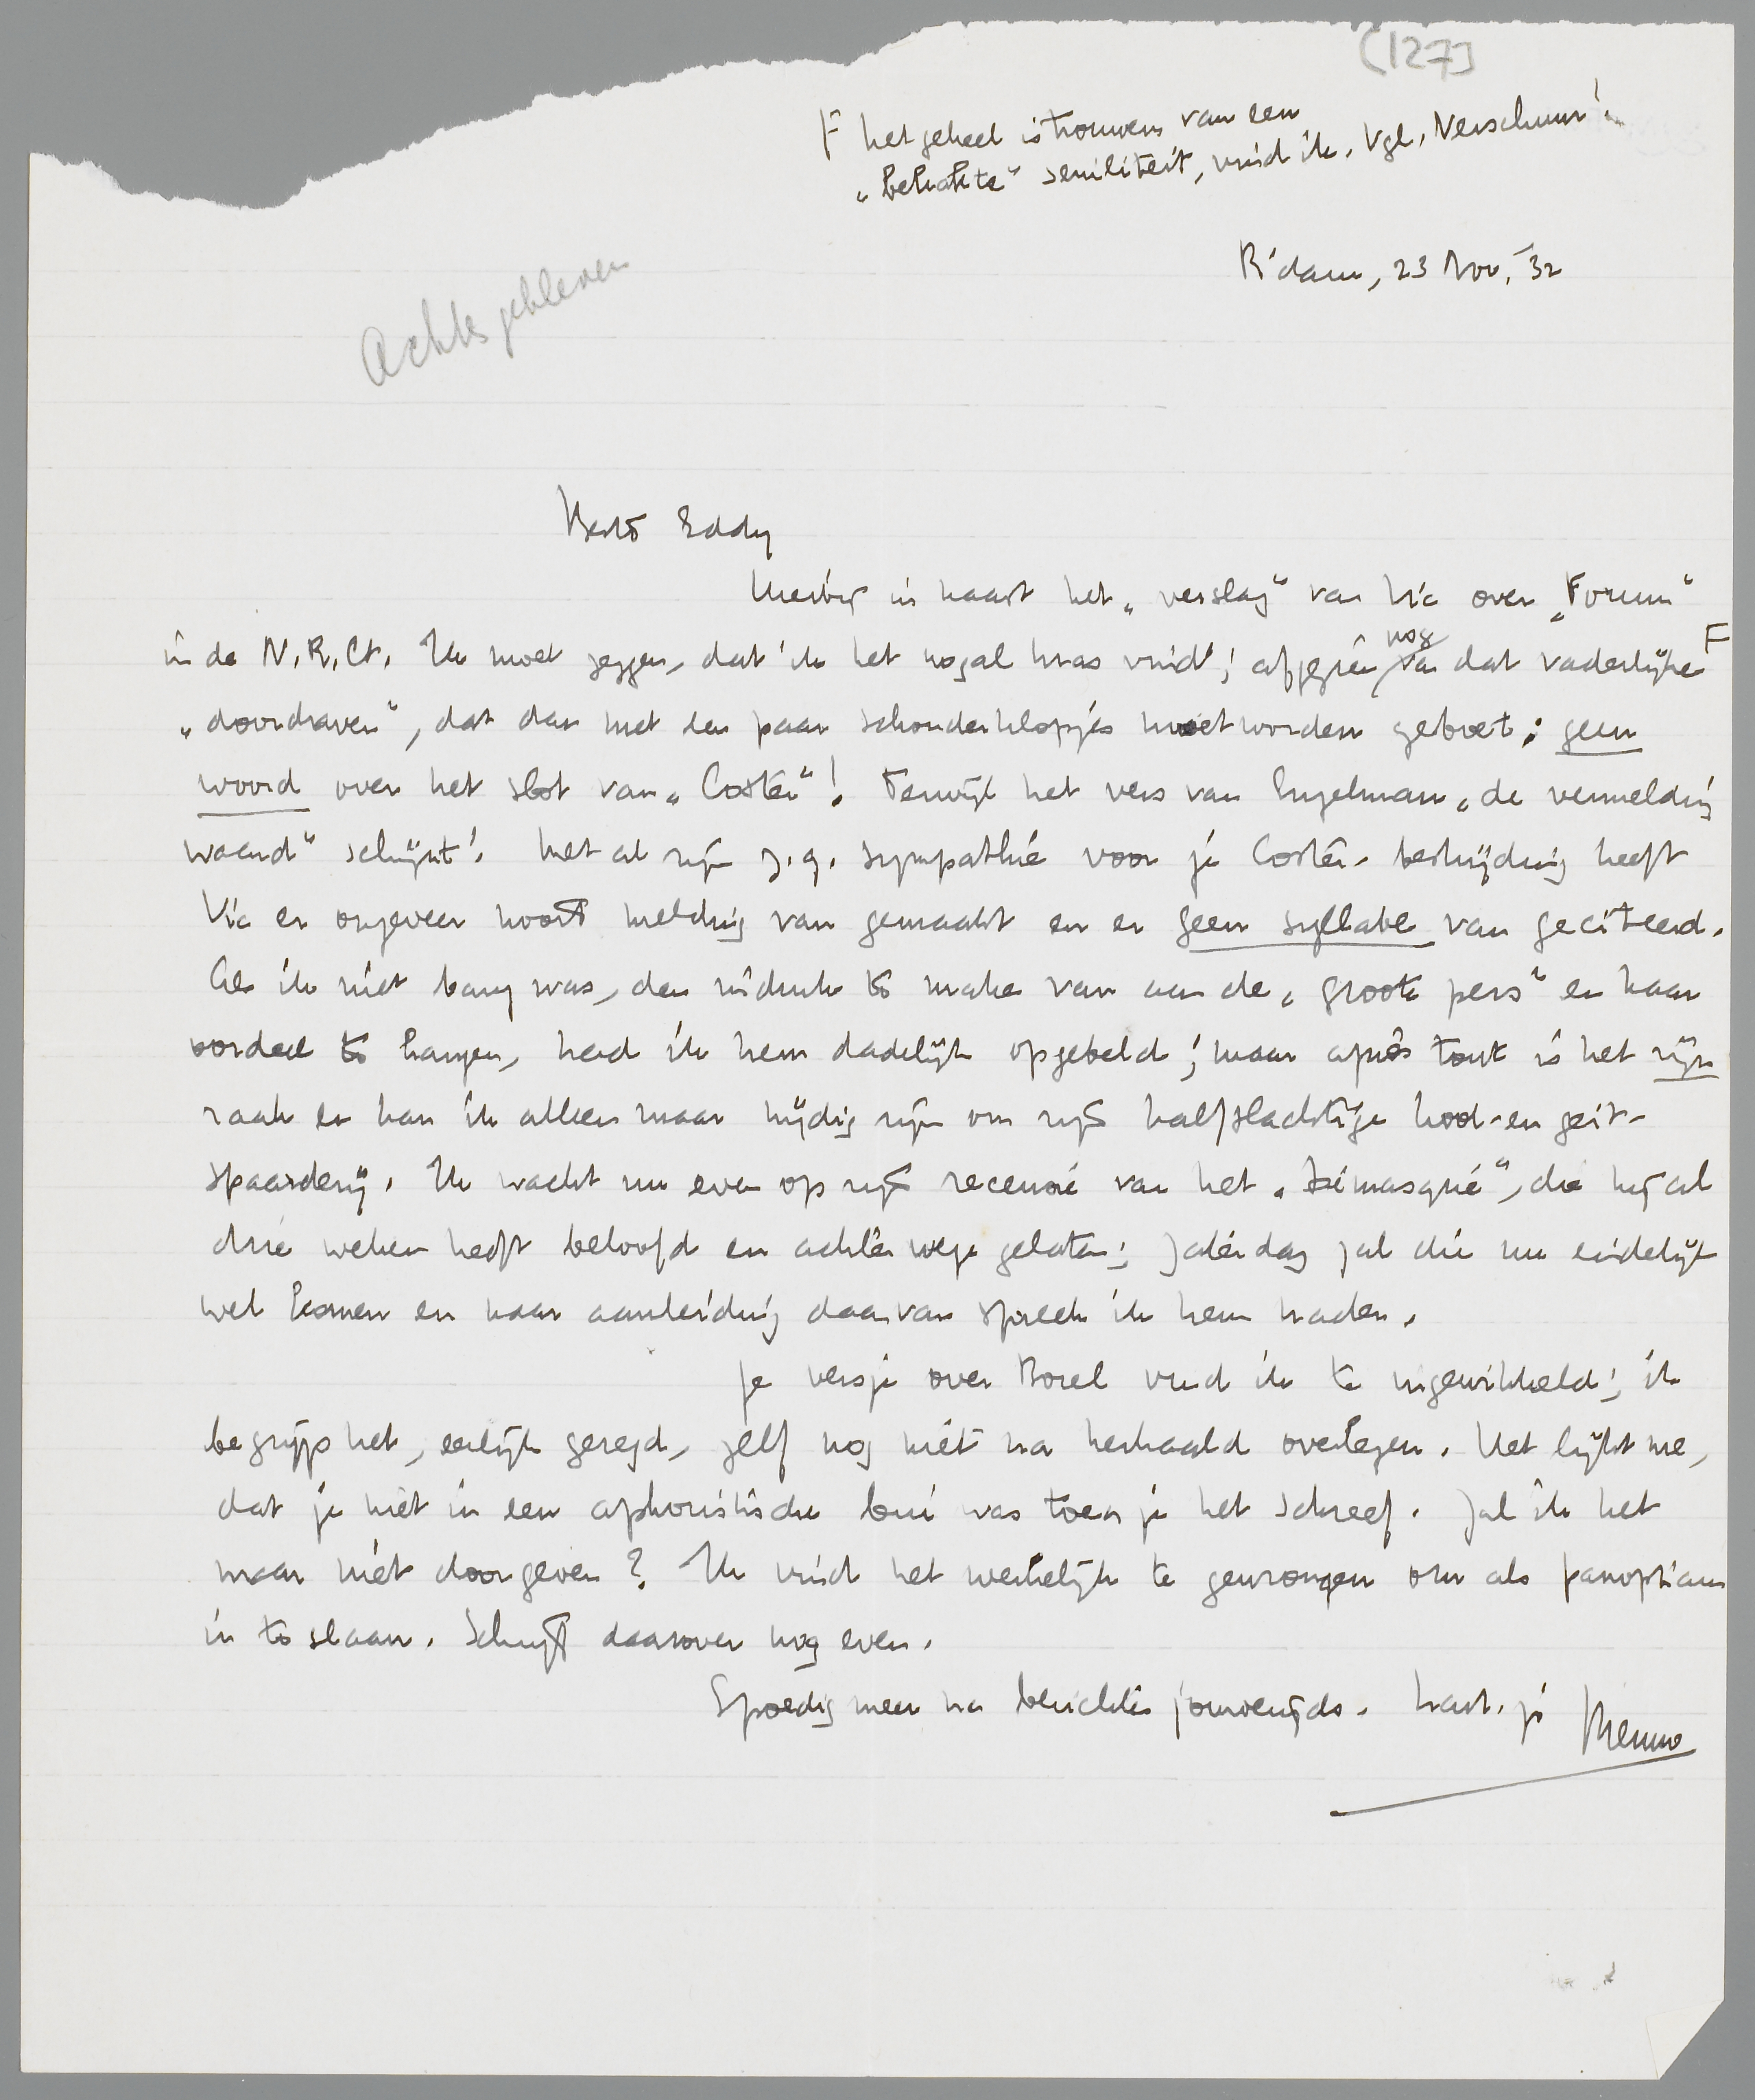 (127]
F het geheel is trouwens van een
„bekakte" seniliteit, vind ik. Vgl. Verschuur!
R'dam, 23 Nov. '32
Achtergebleven
Beste Eddy
Hierbij in haast het „verslag" van Vic over „Forum"
in de N.R.Ct. Ik moet zeggen, dat ik het nogal kras vind; afgezien nog van dat vaderlijke F
„doordraven", dat dan met een paar schouderklopjes moet worden geboet: geen
woord over het slot van „Coster"! Terwijl het vers van Engelman „de vermelding
waard" schijnt! Met al zijn z.g. sympathie voor je Coster-bestrijding heeft
Vic er ongeveer nooit melding van gemaakt en er geen syllabe van geciteerd.
Als ik niet bang was, den indruk te maken van aan de „groote pers" en haar
oordeel te hangen, had ik hem dadelijk opgebeld; maar après tout is het zijn
zaak en kan ik alleen maar nijdig zijn om zijn halfslachtige kool-en geit-
spaarderij. Ik wacht nu even op zijn recensie van het „Démasqué", die hij al
drie weken heeft beloofd en achterwege gelaten; Zaterdag zal die nu eindelijk
wel komen en naar aanleiding daarvan spreek ik hem nader.
Je versje over Borel vind ik te ingewikkeld; ik
begrijp het, eerlijk gezegd, zelf nog niet na herhaald overlezen. Het lijkt me,
dat je niet in een aphoristische bui was toen je het schreef. Zal ik het
maar niet doorgeven? Ik vind het werkelijk te gewrongen om als panopticum
in te slaan. Schrijf daarover nog even.
Spoedig meer na berichten jouwerzijds. hart. je Menno